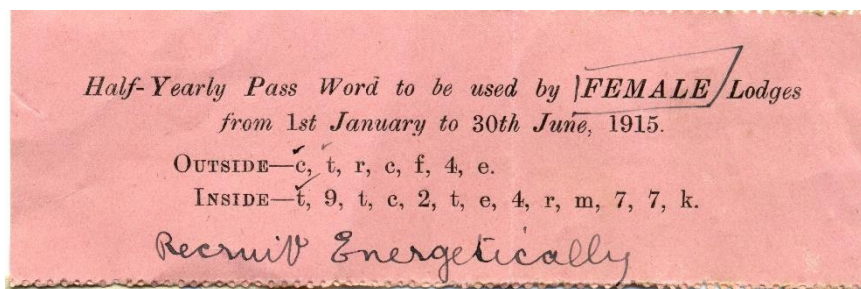 Half-Yearly Pass Word to be used by FEMALE Lodges
from 1st January to 30th June, 1915.
OUTSIDE—c, t, r, c, f, 4, e.
INSIDE—t, 9, t, c, 2, t, e, 4, r, m, 7, 7, k.
Recruit Energetically